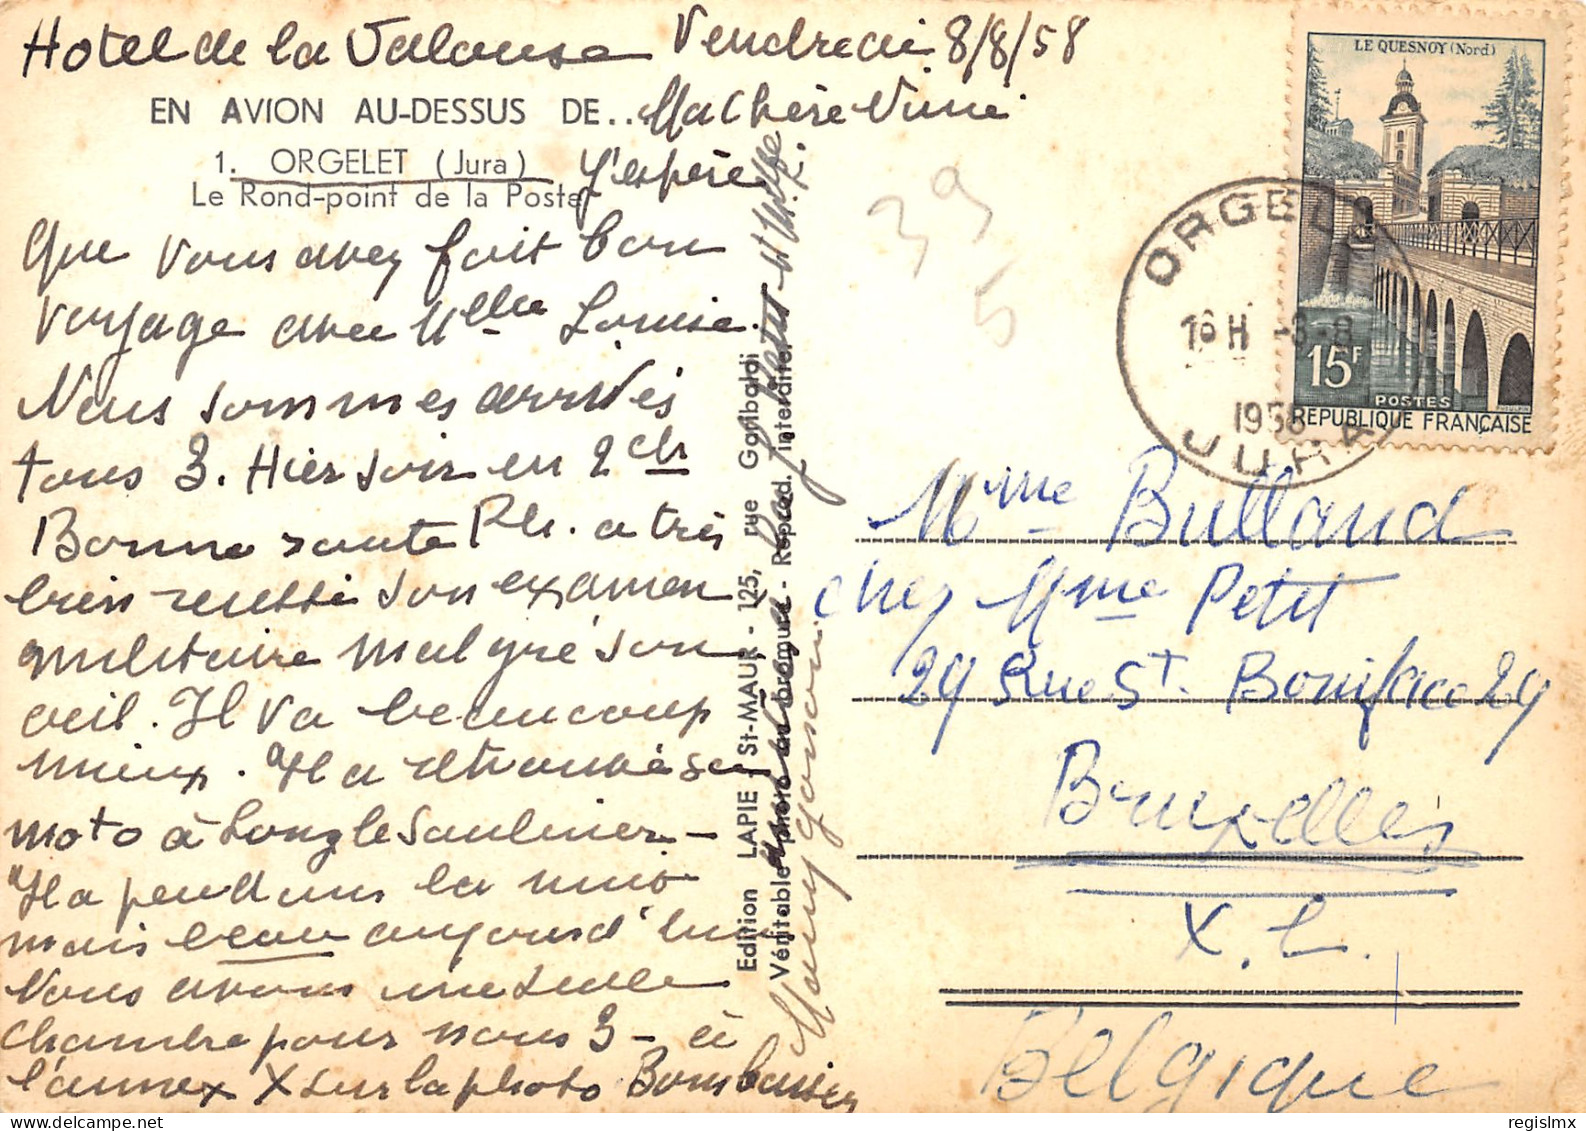 Hotel de la Valouse Vendredi 8/8/58
EN AVION AU-DESSUS DE... Ma Chère Ninie
1. ORGELET (Jura) J'espère
Le Rond-point de la Poste
que vous avez fait bon
voyage avec Melle Louise.
Nous sommes arrivés
tous 3. Hier soir en 2 ch
Bonne route Ph. a très
bien reussi son examen
militaire malgré son
oeil. Il va beaucoup
mieux. Il a retrouvé sa
moto à Longle Saulnier -
Il a pendans la nuis
mais beau aujourd'hui
Nous avons une seule
chambre pour nous 3 - à
l'annex X sur la photo Bons baisers
Edition LAPIE - St-MAUR - 125, rue Garibaldi
Véritable photo au bromure - Reprod. interdite
LE QUESNOY (Nord)
15F
POSTES
REPUBLIQUE FRANÇAISE
ORGELET
16 H -8-8
1958
JURA
39
5
Mme Bulland
chez Mme Petit
29 Rue St. Boniface 29
Bruxelles
X.L.
Belgique
regislmx